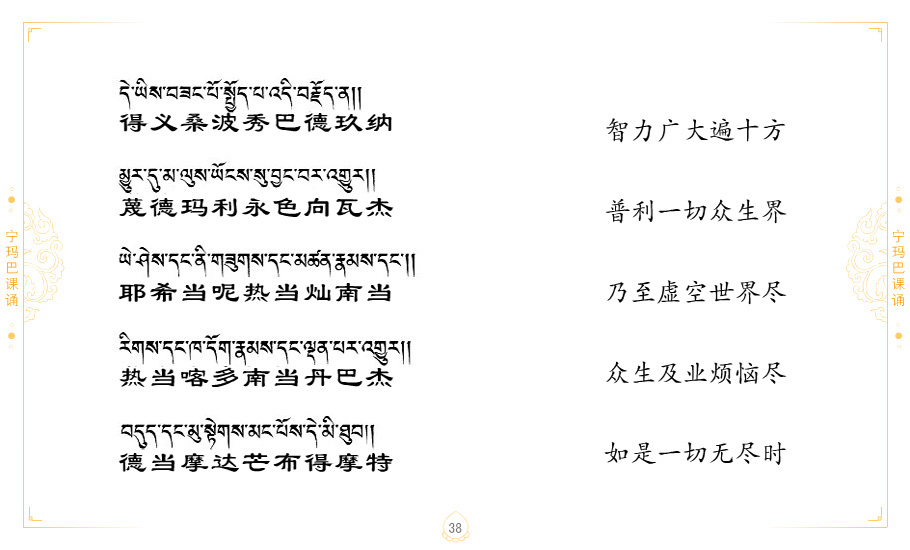 དེ་ཡིས་བཟང་པོ་སྤྱོད་པ་འདི་བརྗོད་ན།།
得义桑波秀巴德玖纳
མྱུར་དུ་མ་ལུས་ཡོངས་སུ་བྱང་བར་འགྱུར།།
蔑德玛利永色向瓦杰
ཡེ་ཤེས་དང་ནི་གཟུགས་དང་མཚན་རྣམས་དང་།།
耶希当呢热当灿南当
རིགས་དང་ཁ་དོག་རྣམས་དང་ལྡན་པར་འགྱུར།།
热当喀多南当丹巴杰
བདུད་དང་མུ་སྟེགས་མང་པོས་དེ་མི་ཐུབ།།
德当摩达芒布得摩特
智力广大遍十方
普利一切众生界
乃至虚空世界尽
众生及业烦恼尽
如是一切无尽时
宁玛巴课诵
宁玛巴课诵
38